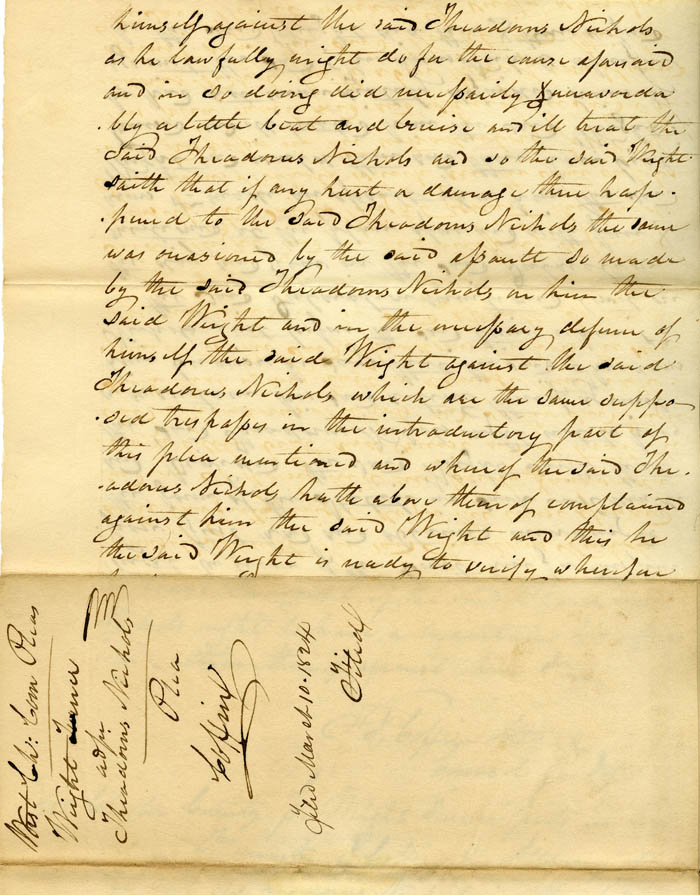 himself against the said Theadorus Nichols
as he lawfully might do for the cause aforesaid
and in so doing did necessarily & unavoida
bly a little beat and bruise and ill treat the
said Theadorus Nichols and so the said Wright
saith that if any hurt or damage then hap-
-pened to the said Theadorus Nichols the same
was occasioned by the said assault so made
by the said Theadorus Nichols on him the
said Wright and in the necessary defence of
himself the said Wright against the said
Theadorus Nichols which are the same suppo
-sed trespasses in the introductory part of
this plea mentioned and whereof the said The-
-adorus Nichols hath above thereof complained
against him the said Wright and this he
the said Wright is ready to verify wherefore
West Ch: Com Pleas
Wright Turner
ads
Theadorus Nichols
Plea
Coffin
Filed March 10. 1824
Filed